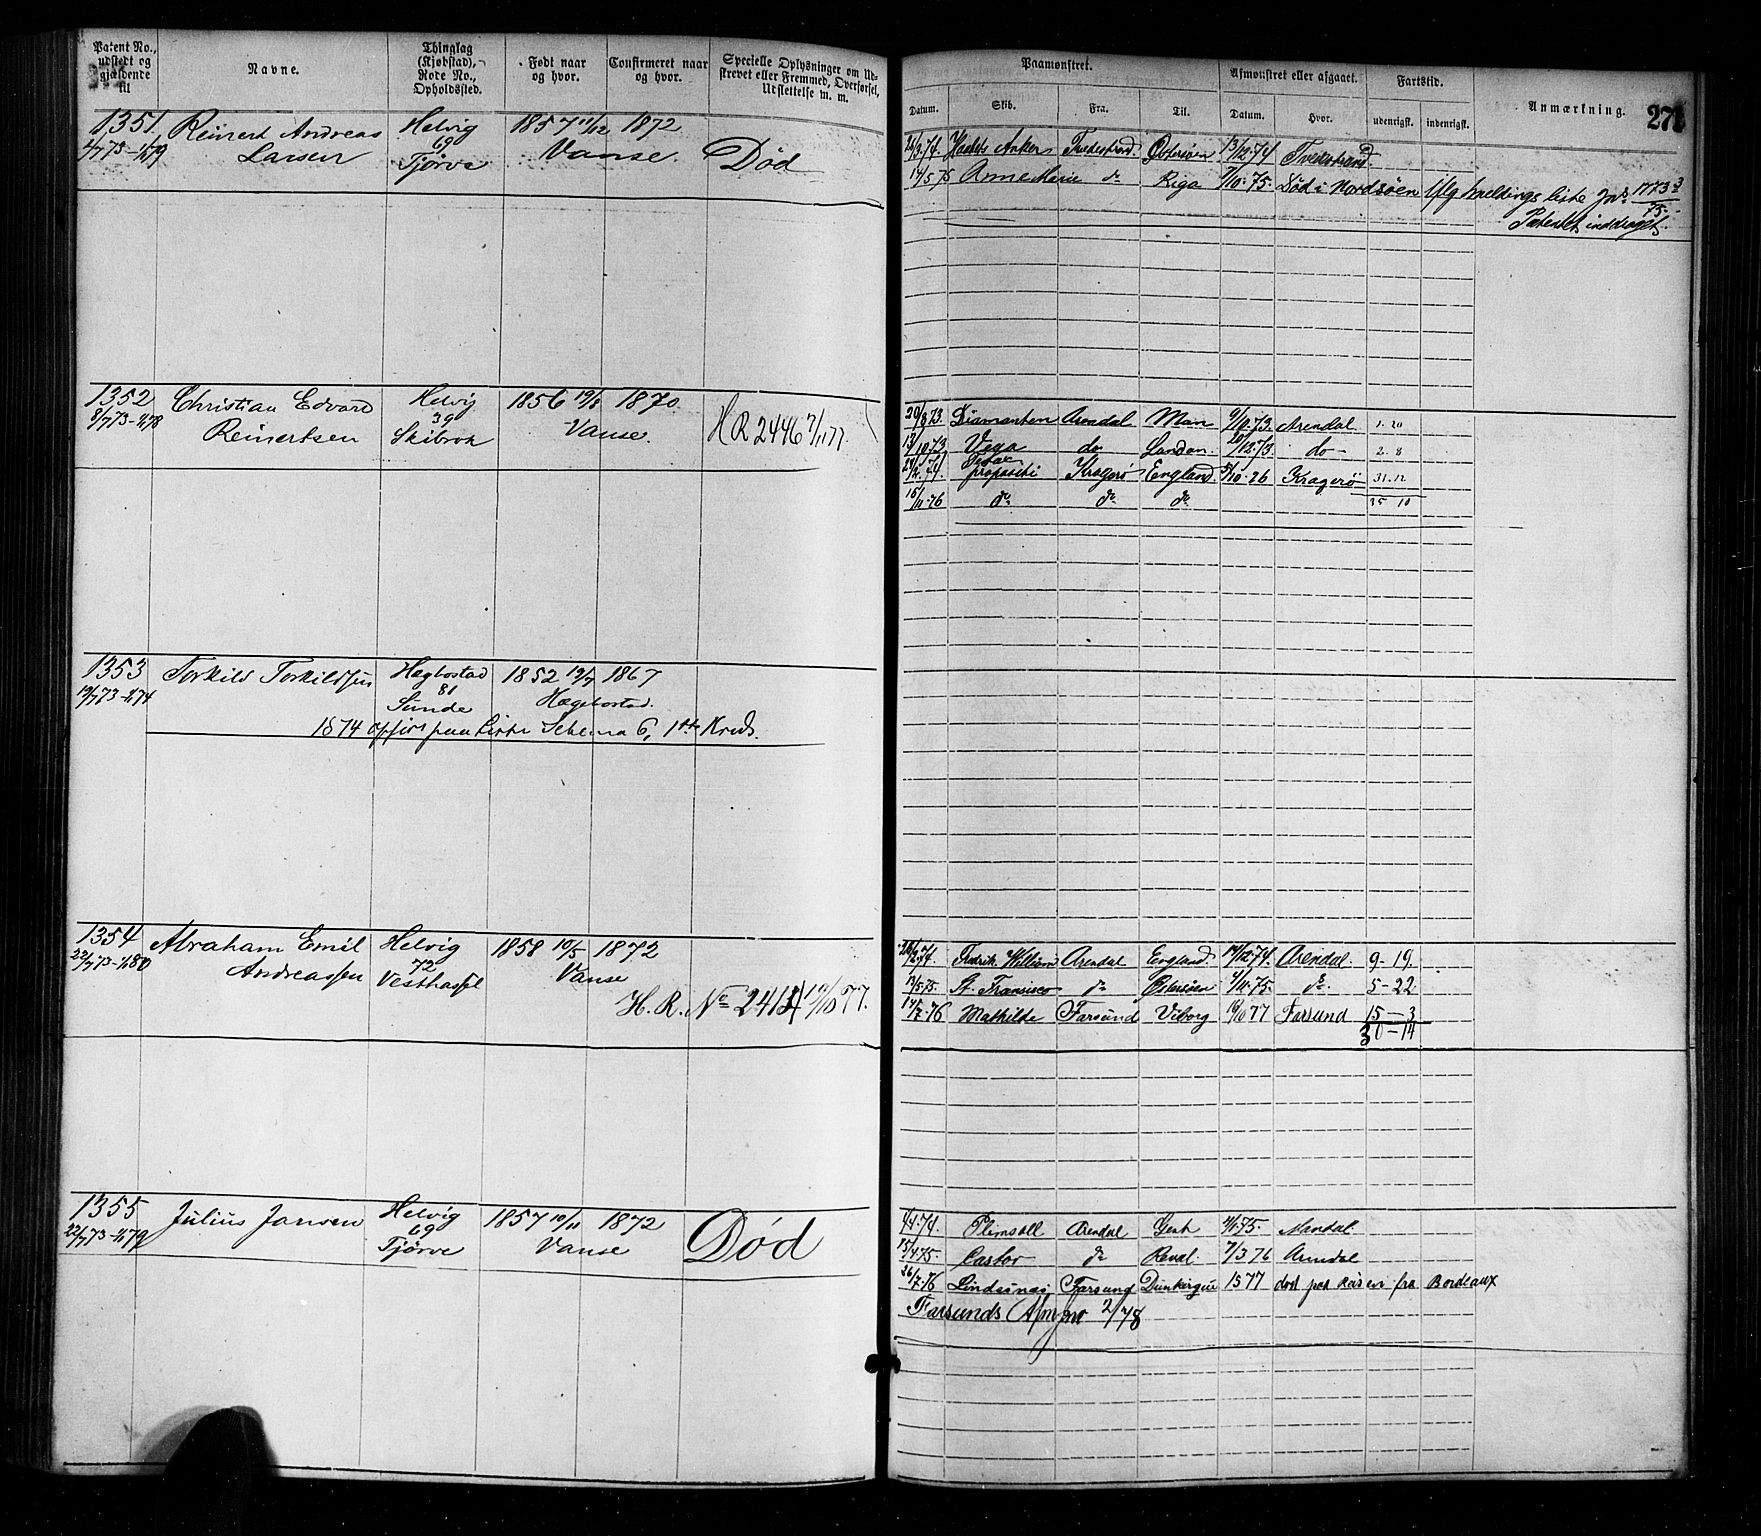 Patent No., udstedt og gjældende til
Navne.
Thinglag (Kjøbstad), Rode No., Opholdssted.
Født naar og hvor.
Confirmeret naar og hvor.
Specielle Oplysninger om Udstrevet eller Fremmed, Overførsel, Udslettelse m. m.
1351 Reinert Andreas Helvig 1857 11/12 1872
69
Larsen Tjørve Vanse. Død
1352 Christian Edvard Helvig 1856 19/8 1870.
8/7 73-1/1 78 39
Reinertsen Skibrok Vanse. HR 2446 7/11 77.
1353 Torkild Torkildsen Hægbostad 1852 19/7 1867
19/7 73-1/1 74 81
Sunde Hægebostad.
1874 opført paa Liste Schema 6, 1ste Kreds.
1354 Abraham Emil Helvig 1858 10/5 1872
22/7 73-1/1 80 72
Andreassen Vesthassel Vanse
H. R. No 2414 19/10 77.
1355 Julius Jansen Helvig 1857 10/11 1872
22/7 73-1/1 79 69
Tjørve Vanse Død
Paamønstret.
Afmønstret eller afgaaet.
Fartstid.
Anmærkning.
271
Datum. Skib. Fra. Til. Datum. Hvor. udenrigsk. indenrigsk.
Haabets Anker Tvedestrand Østersøen 13/12 74 Tvedestrand.
14/5 75 Anne Marie do Riga 7/10 75. Død i Nordsøen Ifølg meldings liste Jno 1773
75.
Patentet inddraget.
29/8 73. Diamanten Arendal Man 9/10 73 Arendal. 1. 20
13/10 73 Vega do London. 20/12 73. do - 2. 8
propositi Kragerø England. 5/10 76 Kragerö 31. 12
16/11 76 do do do 35 10
Fredrik William Arendal England. 14/12 74. Arendal. 9 - 19
12/5 75. St. Fransisco do Østersøen 4/11 75. do 5 - 22
14/7 76 Mathilde Farsund Viborg 10/10 77 Farsund 15 - 3
30 - 14
4/4 74. Plimsoll Arendal Gent 11/1 75 Mandal.
15/4 75. Castor do Reval 7/3 76 Arendal
26/7 76 Lindesnæs Farsund Dunkirque 1877 død paa Reisen fra Bordeaux
Farsunds Afm jno 2/78